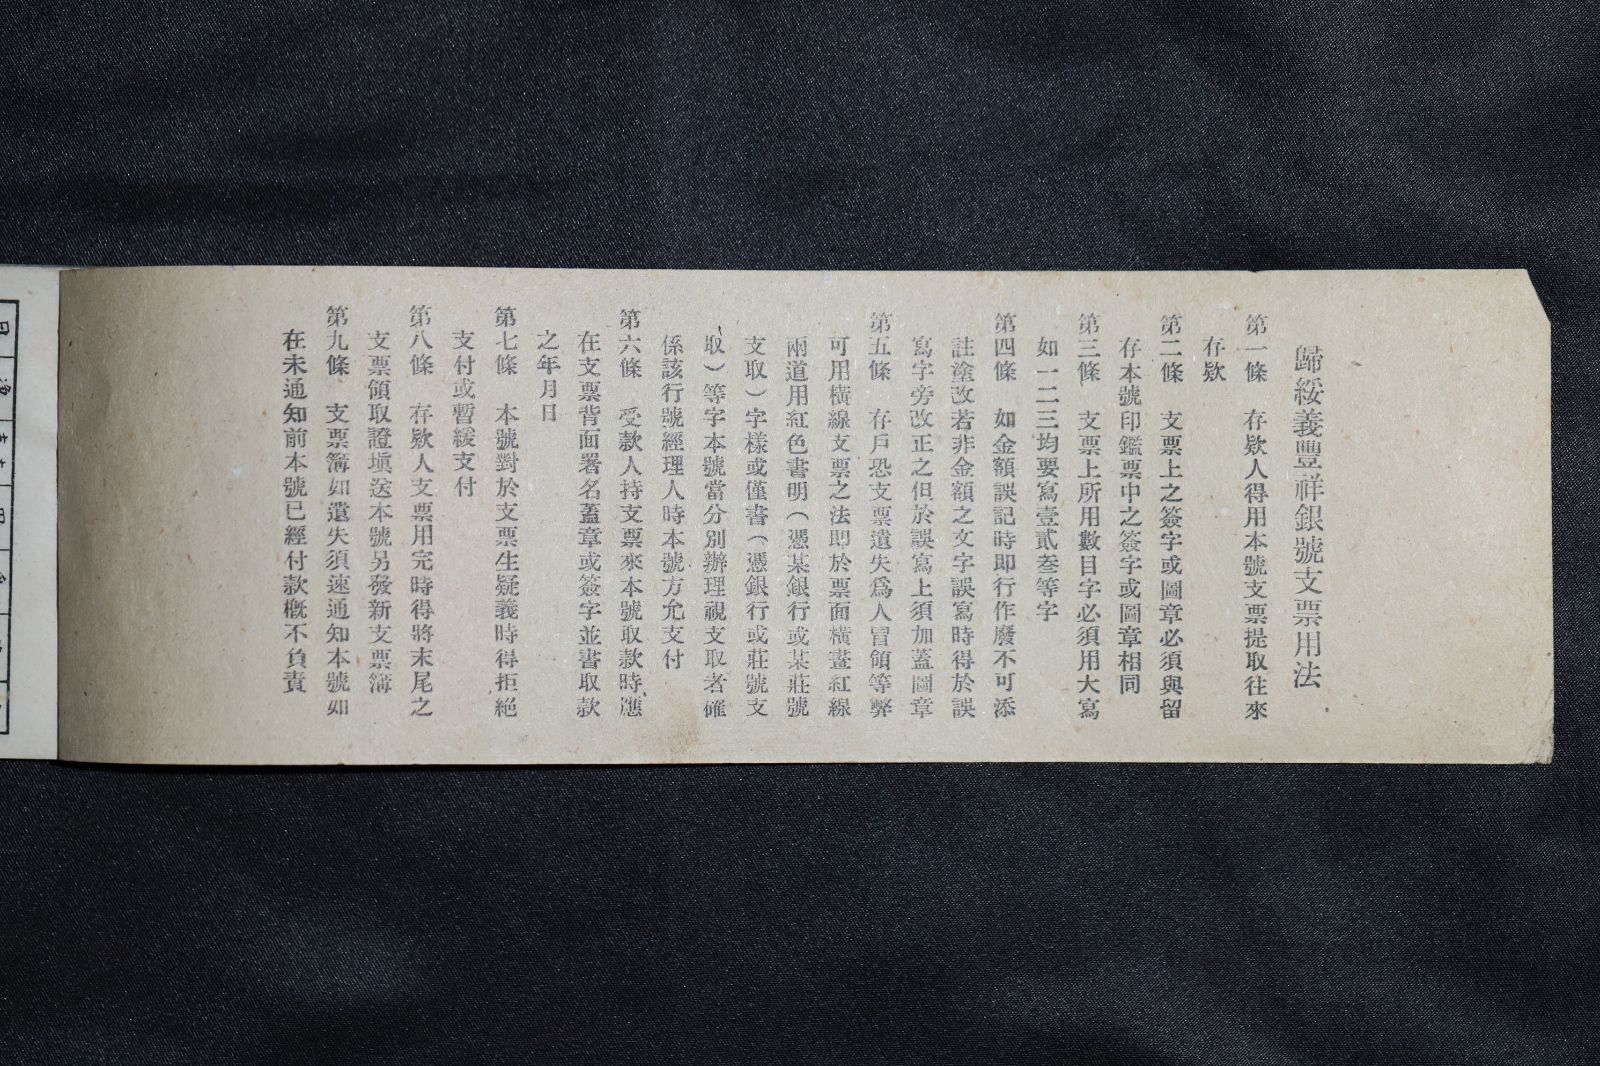 歸綏義豐祥銀號支票用法
第一條　存欵人得用本號支票提取往來
存欵
第二條　支票上之簽字或圖章必須與留
存本號印鑑票中之簽字或圖章相同
第三條　支票上所用數目字必須用大寫
如一二三均要寫壹貳叁等字
第四條　如金額誤記時即行作廢不可添
註塗改若非金額之文字誤寫時得於誤
寫字旁改正之但於誤寫上須加蓋圖章
第五條　存戶恐支票遺失爲人冒領等弊
可用橫線支票之法即於票面橫畫紅線
兩道用紅色書明（憑某銀行或某莊號
支取）字樣或僅書（憑銀行或莊號支
取）等字本號當分別辦理視支取者確
係該行號經理人時本號方允支付
第六條　受款人持支票來本號取款時應
在支票背面署名蓋章或簽字並書取款
之年月日
第七條　本號對於支票生疑義時得拒絕
支付或暫緩支付
第八條　存欵人支票用完時得將末尾之
支票領取證塡送本號另發新支票簿
第九條　支票簿如遺失須速通知本號如
在未通知前本號已經付款概不負責